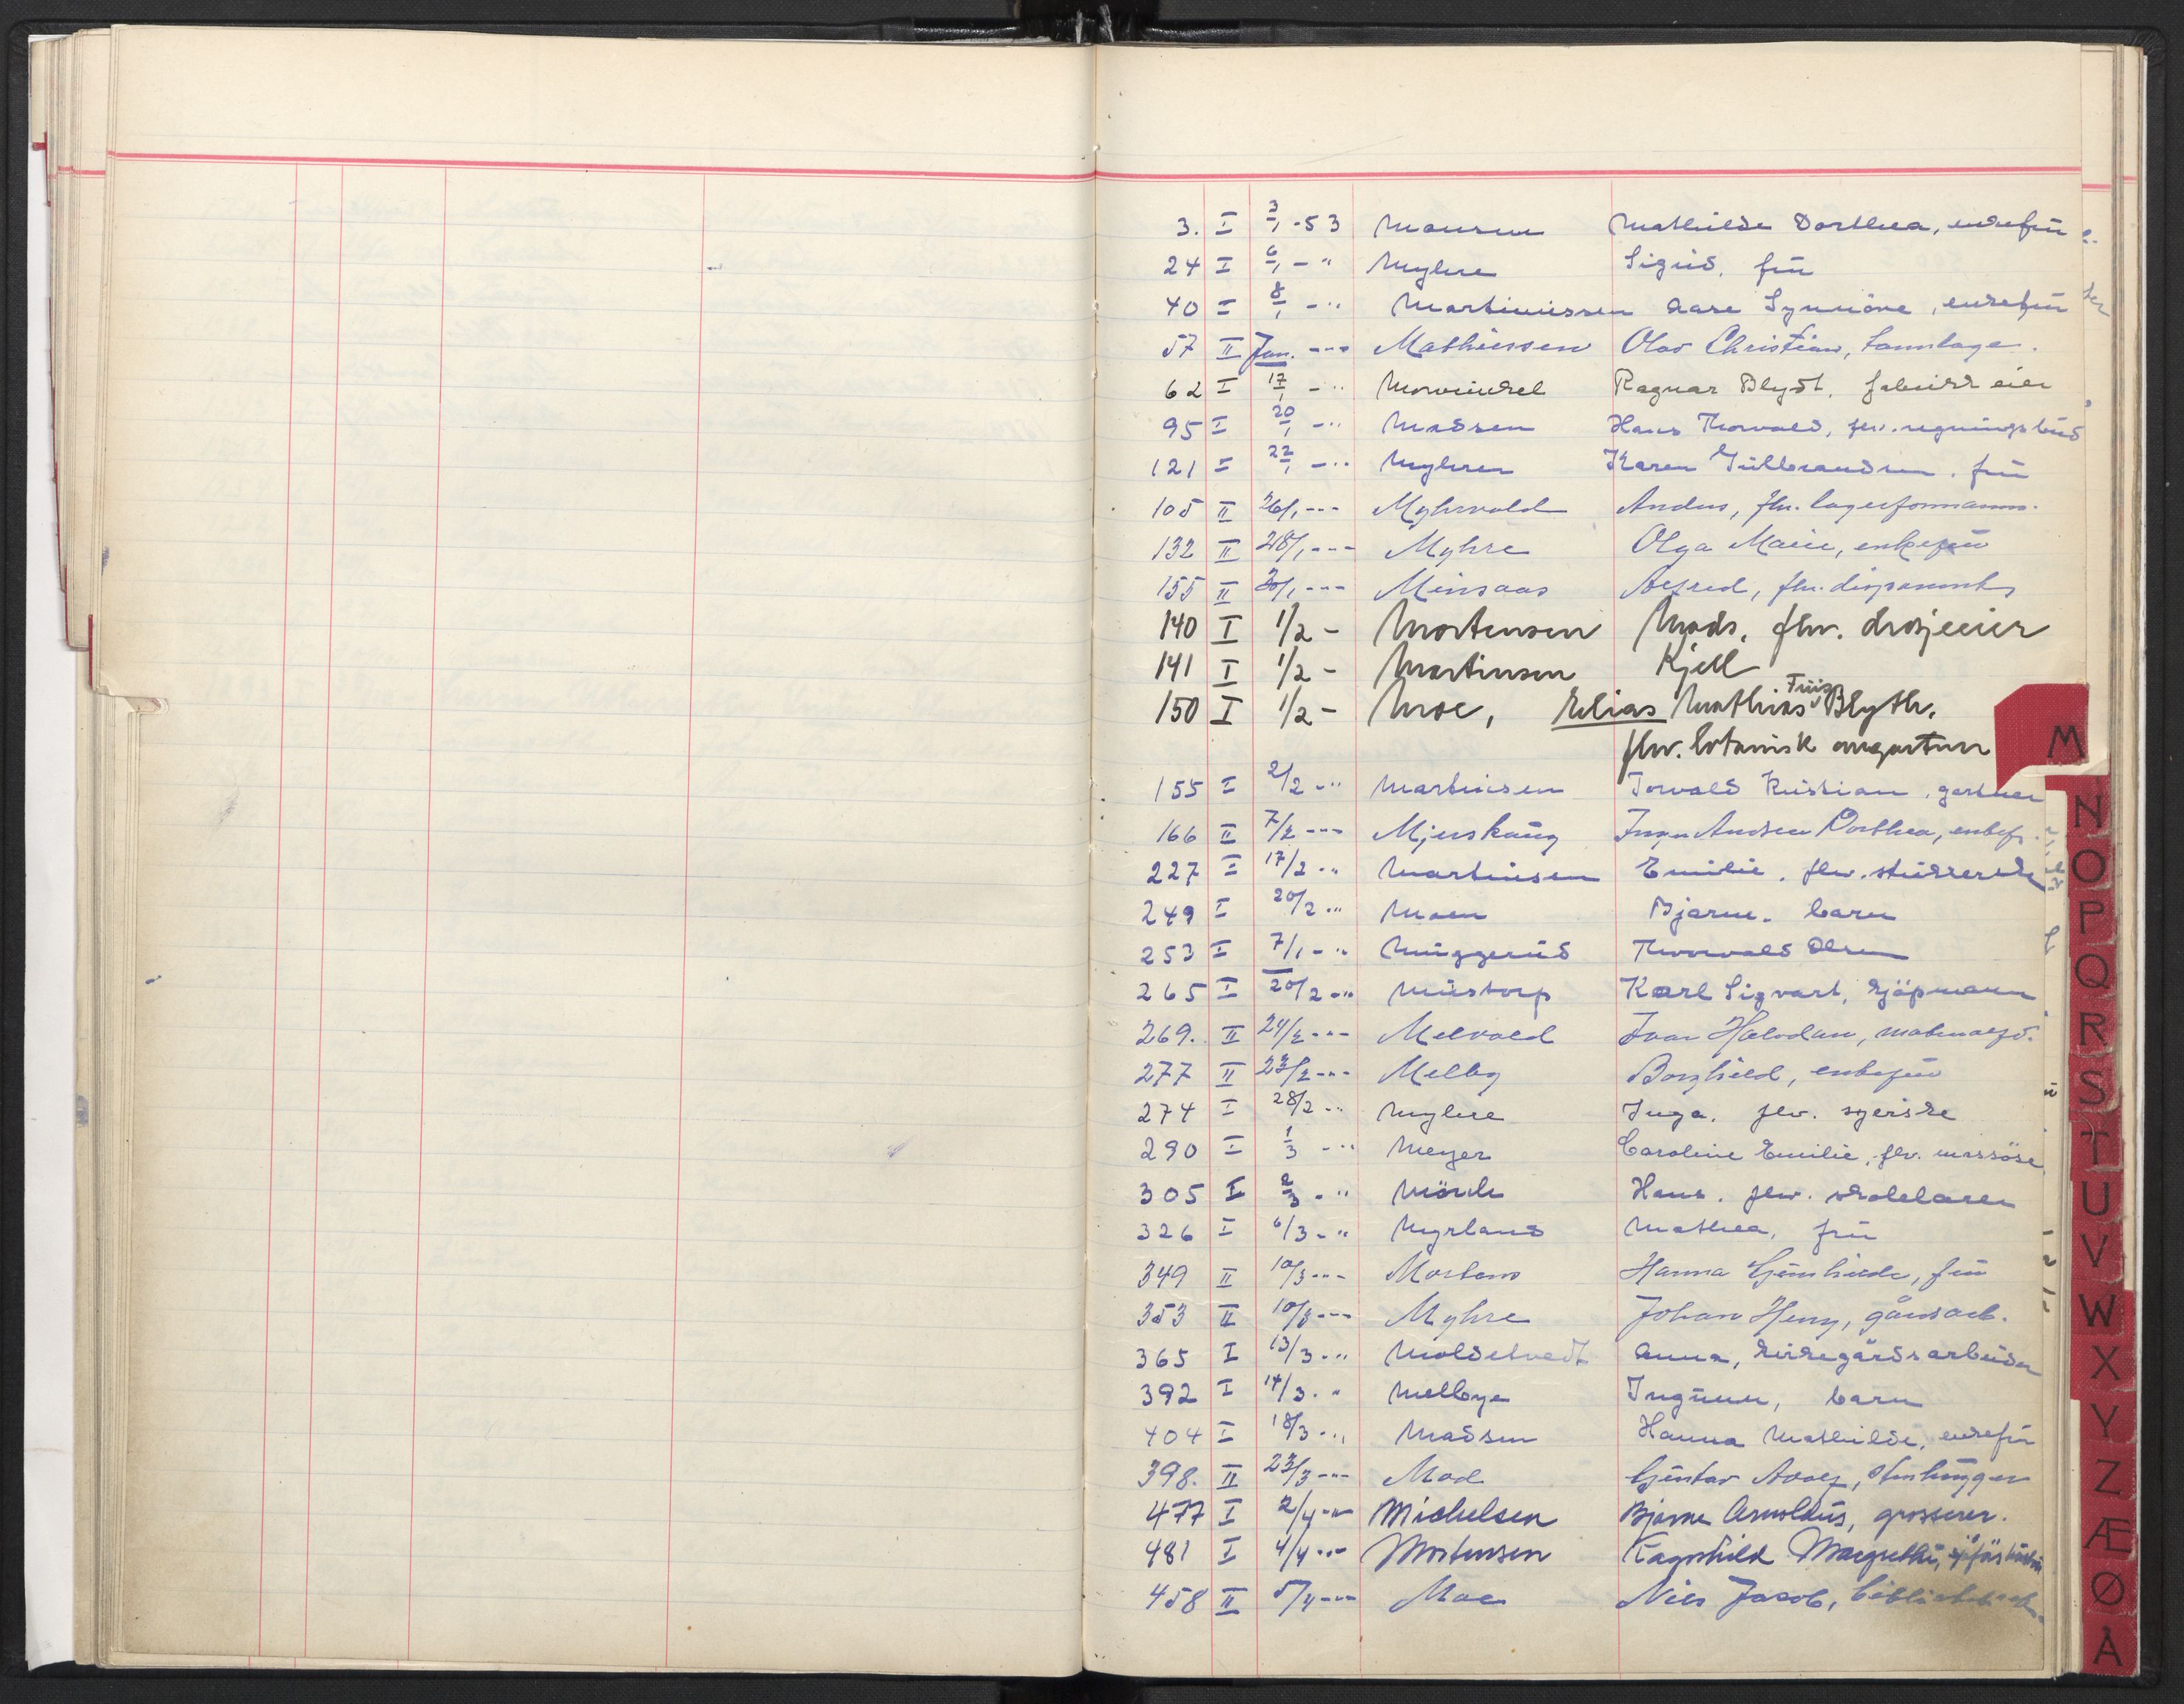 3. I 3/1 -53 Monsen Mathilde Dorthea, enkefrü
24 I 6/1 - " Myhre Sigrid, frü
40 I 8/1 - " Martiniussen Aase Synnöve, enkefrü
57 II Jan. - " - Mathiessen Olav Christian, tannlæge.
62 I 17/1 - " Mowinckel Ragnar Blydt, fabrikkeier
95 I 20/1 - " Madsen Hans Thorvald, flv. regningsbüd
121 I 22/1 - " Myhrer Karen Gülbrandsen, frü
105 II 26/1 - " - Myhrvold Anders, flv. lagerformann.
132 II 28/1 - " - Myhre Olga Marie, enkefrü
155 II 30/1 - " - Minsaas Alfred, flv. disponent
140 I 1/2 - Mortensen Mads, flv. drosjeeier
141 I 1/2 - Martinsen Kjell
150 I 1/2 - Moe, Elias Mathias Friis Blyth.
flv. botanisk
155 I 2/2 - " Martinsen Torvald Kristian, gartner
166 II 7/2 - " - Mjerskaug Dorthea, enkefr.
227 I 17/2 - " Martinsen Emilie, flv. stükkerske
249 I 20/2 - " Moen Bjarne, barn
253 I 7/1 - " Müggerüd Thorvald Olsen
265 I 20/2 - " Müstorp Karl Sigvart, kjöpmann
269. II 24/2 - " - Melvold Ivar Halvdan,
277 II 23/2 - " - Melby Borghild, enkefrü
274 I 28/2 - " Myhre Inga, flv. syerske
290 I 1/3 - " Meyer Caroline Emilie, flv. massöse
305 I 2/3 - " Mörch Hans, flv. skolelærer
326 I 6/3 - " Myrland Mathea, frü
349 II 10/3 - " - Mortens Hanna Günhilde, frü
353 II 10/3 - " - Myhre Johan Henry, gårdsarb.
365 I 13/3 - " Moldstvedt Anna, kirkegårdsarbeider
392 I 14/3 - " Melbye Ingünn, barn
404 I 18/3 - " Madsen Hanna Mathilde, enkefrü
398. II 23/3 - " - Mod Güstav Adolf, stenhügger
477 I 2/4 - " - Michelsen Bjarne Arnoldüs, grosserer.
481 I 4/4 - " - Mortensen Ragnhild Margrethe,
458 II 5/4 - " - Moe Nils Jacob,
M
N
O
P
Q
R
S
T
U
V
W
X
Y
Z
Æ
Ø
A